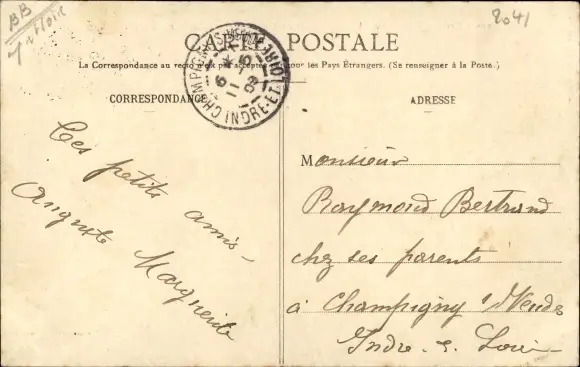 BB
2041
CARTE POSTALE
La Correspondance au recto n'est pas acceptée pour tous les Pays Étrangers. (Se renseigner à la Poste.)
CHAMPIGNY-S-VEUDE
6 *
11 -5
09
INDRE-ET-LOIRE
CORRESPONDANCE
ADRESSE
Ces petits amis
Auguste Marguerite
Monsieur
Raymond Bertrand
chez ses parents
à Champigny s/Veude
Indre-e-Loire